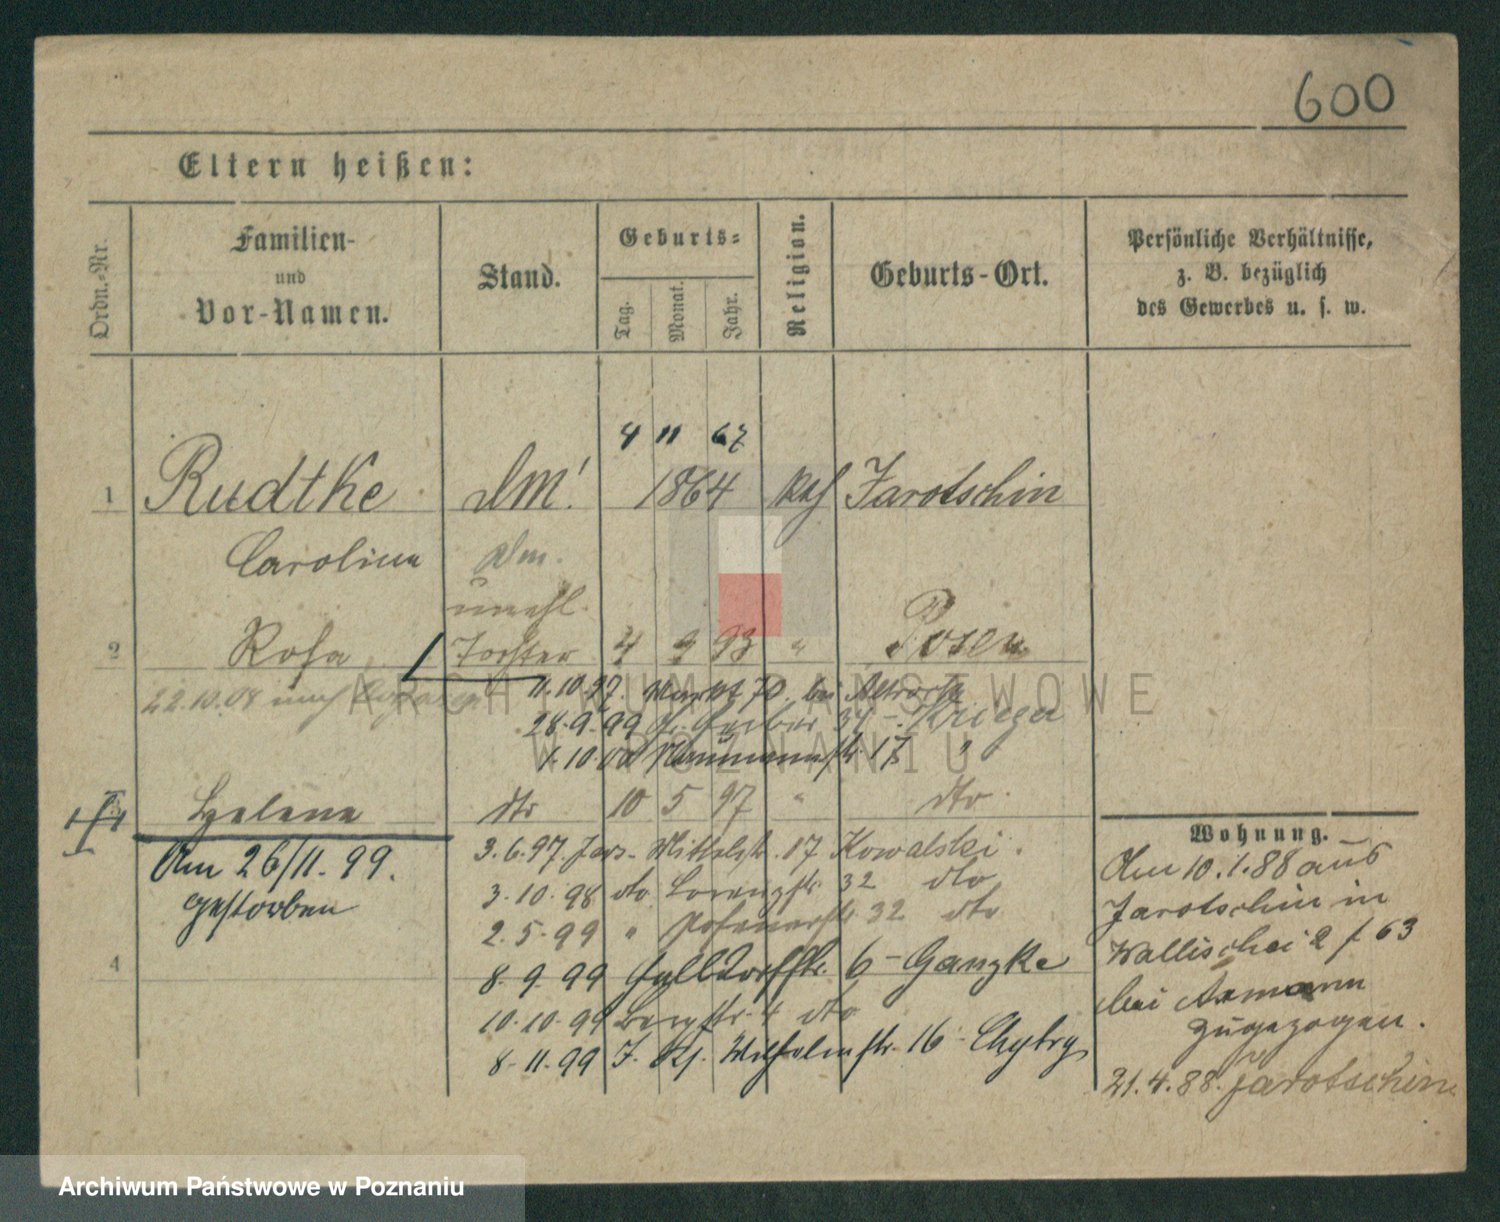 600
Eltern heißen:
Ordn.-Nr.
Familien-
und
Vor-Namen.
Stand.
Geburts-
Tag.
Monat.
Jahr.
Religion.
Geburts-Ort.
Persönliche Verhältnisse,
z. B. bezüglich
des Gewerbes u. s. w.
4 11 67
1 Rudtke 1864 Kath Jarotschin
Carolina
unehl.
2 Rosa Tochter 4 9 93 " Posen
22.10.08 nach
11.10.97. Markt 70. bei
28.9.99 34 - Krieger
1.10.00 Naumannstr. 17 "
Helene dto 10 5 97 " dto
Am 26/11. 99.
gestorben
3.6.97. Jers. Mittelstr. 17 Kowalski.
3.10.98 dto Lorenzstr. 32 dto
2.5.99 " Posenerstr. 32 dto
4
8.9.99 6 - Ganzke
10.10.99 Bergstr. 4 dto
8.11.99 J. Wilhelmstr. 16 - Chytry
Wohnung.
Am 10.1.88 aus
Jarotschin in
Wallischei 2 / 63
bei
zugezogen.
21.4.88. Jarotschin
ARCHIWUM PAŃSTWOWE
W POZNANIU
Archiwum Państwowe w Poznaniu